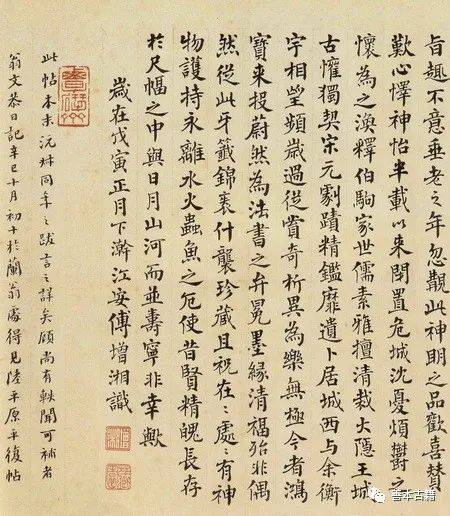 旨趣不意垂老之年忽觀此神明之品歡喜贊
歎心懌神怡半載以來閉置危城沈憂煩鬱之
懷為之渙釋伯駒家世儒素雅擅清裁大隱王城
古懽獨契宋元劇蹟精鑑靡遺卜居城西與余衡
宇相望頻歲過從賞奇析異為樂無極今者鴻
寶來投蔚然為法書之弁冕墨緣清福殆非偶
然從此牙籤錦裹什襲珍藏且祝在〻處〻有神
物護持永離水火蟲魚之厄使昔賢精魄長存
於尺幅之中與日月山河而並壽寧非幸歟
歲在戊寅正月下澣江安傅增湘識
此帖本末沅叔同年之跋言之詳矣顧尚有軼聞可補者
翁文恭日記辛巳十月初十於蘭翁處得見陸平原平復帖
善本古籍